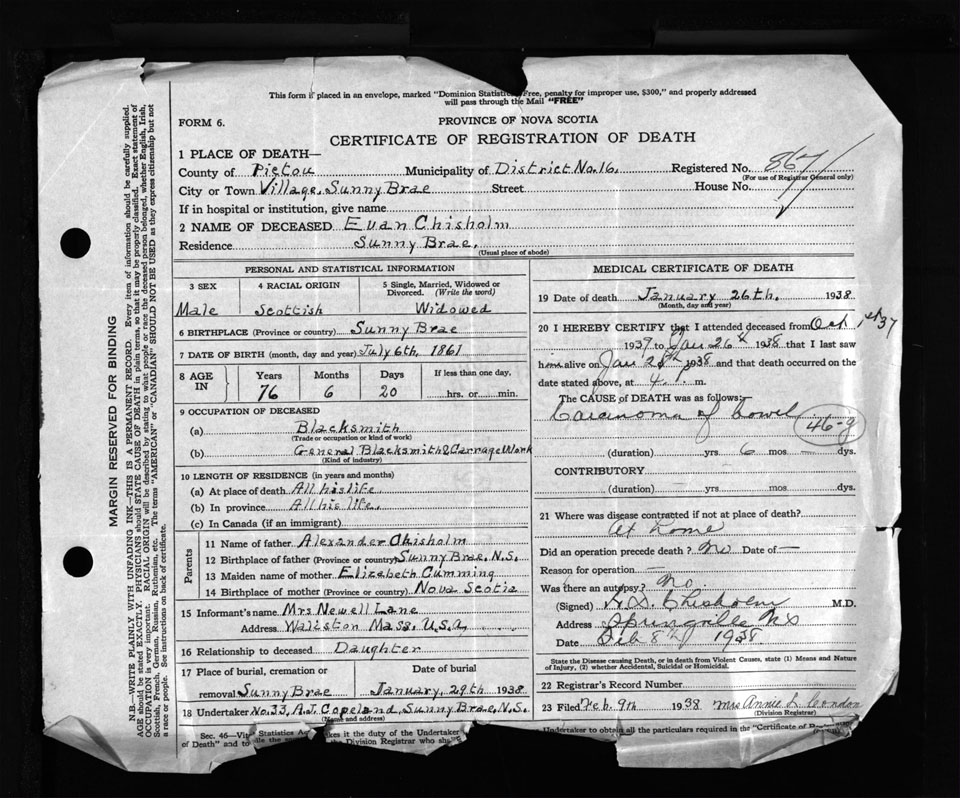 This form if placed in an envelope, marked "Dominion Statistics Free, penalty for improper use, $300," and properly addressed
will pass through the Mail "FREE"
FORM 6.
PROVINCE OF NOVA SCOTIA
CERTIFICATE OF REGISTRATION OF DEATH
1 PLACE OF DEATH—
County of Pictou Municipality of District No. 16. Registered No. 867
(For use of Registrar General only)
City or Town Village, Sunny Brae Street House No.
If in hospital or institution, give name
2 NAME OF DECEASED Evan Chisholm
Residence Sunny Brae.
(Usual place of abode)
PERSONAL AND STATISTICAL INFORMATION
3 SEX 4 RACIAL ORIGIN 5 Single, Married, Widowed or Divorced. (Write the word)
Male Scottish Widowed
6 BIRTHPLACE (Province or country) Sunny Brae
7 DATE OF BIRTH (month, day and year) July 6th, 1861
8 AGE IN Years Months Days If less than one day,
76 6 20 hrs. or min.
9 OCCUPATION OF DECEASED
(a) Blacksmith
(Trade or occupation or kind of work)
(b) General Blacksmith & Carriage Work
(Kind of industry)
10 LENGTH OF RESIDENCE (in years and months)
(a) At place of death All his life
(b) In province All his life.
(c) In Canada (if an immigrant)
Parents
11 Name of father Alexander Chisholm
12 Birthplace of father (Province or country) Sunny Brae, N.S.
13 Maiden name of mother Elizabeth Cumming
14 Birthplace of mother (Province or country) Nova Scotia
15 Informant's name Mrs Newell Lane
Address Mass. U.S.A.
16 Relationship to deceased Daughter
17 Place of burial, cremation or Date of burial
removal Sunny Brae January, 29th 1938
18 Undertaker No. 33, A.J. Copeland, Sunny Brae, N.S.
(Name and address)
MEDICAL CERTIFICATE OF DEATH
19 Date of death January 26th. 1938
(Month, day and year)
20 I HEREBY CERTIFY that I attended deceased from Oct 1st 37
1937 to Jan 26th 1938 that I last saw
him alive on Jan 1938 and that death occurred on the
date stated above, at 4 P. m.
The CAUSE of DEATH was as follows:
Carcinoma of bowel 46-g
(duration) yrs 6 mos — dys.
CONTRIBUTORY
(duration) yrs mos dys.
21 Where was disease contracted if not at place of death?
At home
Did an operation precede death? No Date of —
Reason for operation —
Was there an autopsy? No.
(Signed) Chisholm M.D.
Address Springville NS
Date Feb 8th 1938
State the Disease causing Death, or in death from Violent Causes, state (1) Means and Nature
of Injury, (2) whether Accidental, Suicidal or Homicidal.
22 Registrar's Record Number
23 Filed Feb. 9th 1938 Mrs Annie L. Condon
(Division Registrar)
Sec. 46—Vital Statistics Act makes it the duty of the Undertaker
of Death" and to the Division Registrar who
Undertaker to obtain all the particulars required in the "Certificate of
MARGIN RESERVED FOR BINDING
N.B.—WRITE PLAINLY WITH UNFADING INK—THIS IS A PERMANENT RECORD. Every item of information should be carefully supplied.
AGE should be stated EXACTLY. PHYSICIANS should STATE CAUSE OF DEATH in plain terms, so that it may be properly classified. Exact statement of
OCCUPATION is very important. RACIAL ORIGIN will be described by stating to what people or race the deceased person belonged, whether English, Irish,
Scottish, French, German, Russian, Ruthenian, etc. The terms "AMERICAN" or "CANADIAN" SHOULD NOT BE USED as they express citizenship but not
a race or people. See instructions on back of certificate.